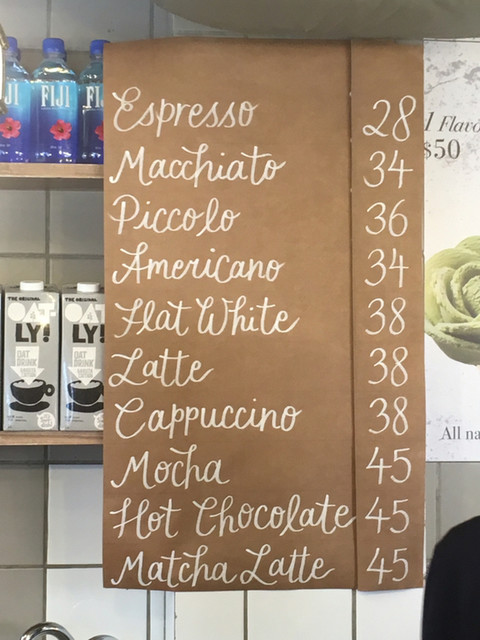 FIJI
FIJI
FIJI
Espresso 28
Macchiato 34
Piccolo 36
Americano 34
Flat White 38
Latte 38
Cappuccino 38
Mocha 45
Hot Chocolate 45
Matcha Latte 45
1 Flavo
$50
All na
THE ORIGINAL
OAT
LY!
OAT
DRINK
THE ORIGINAL
OAT
LY!
OAT
DRINK